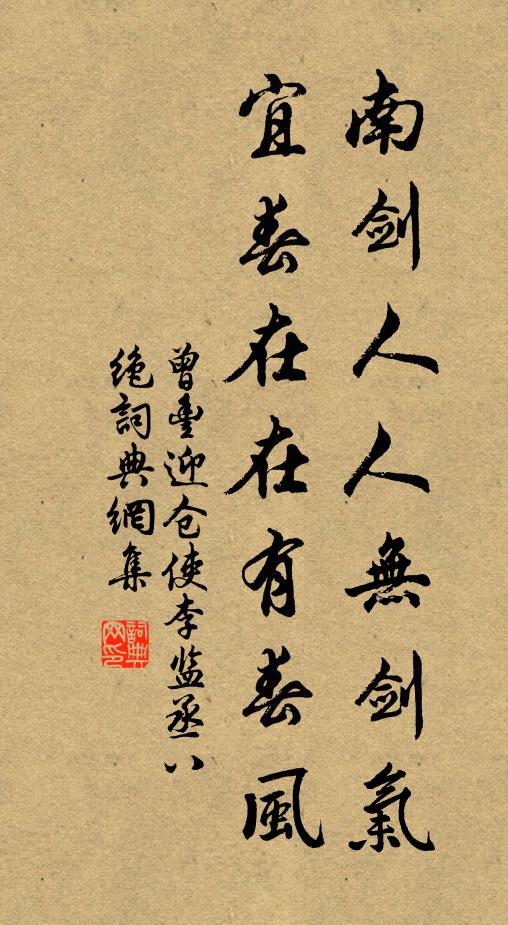 南剑人人無剑氣
宜春在在有春風
曾豊迎仓使李监丞八
绝詞典網集
詞典
网印